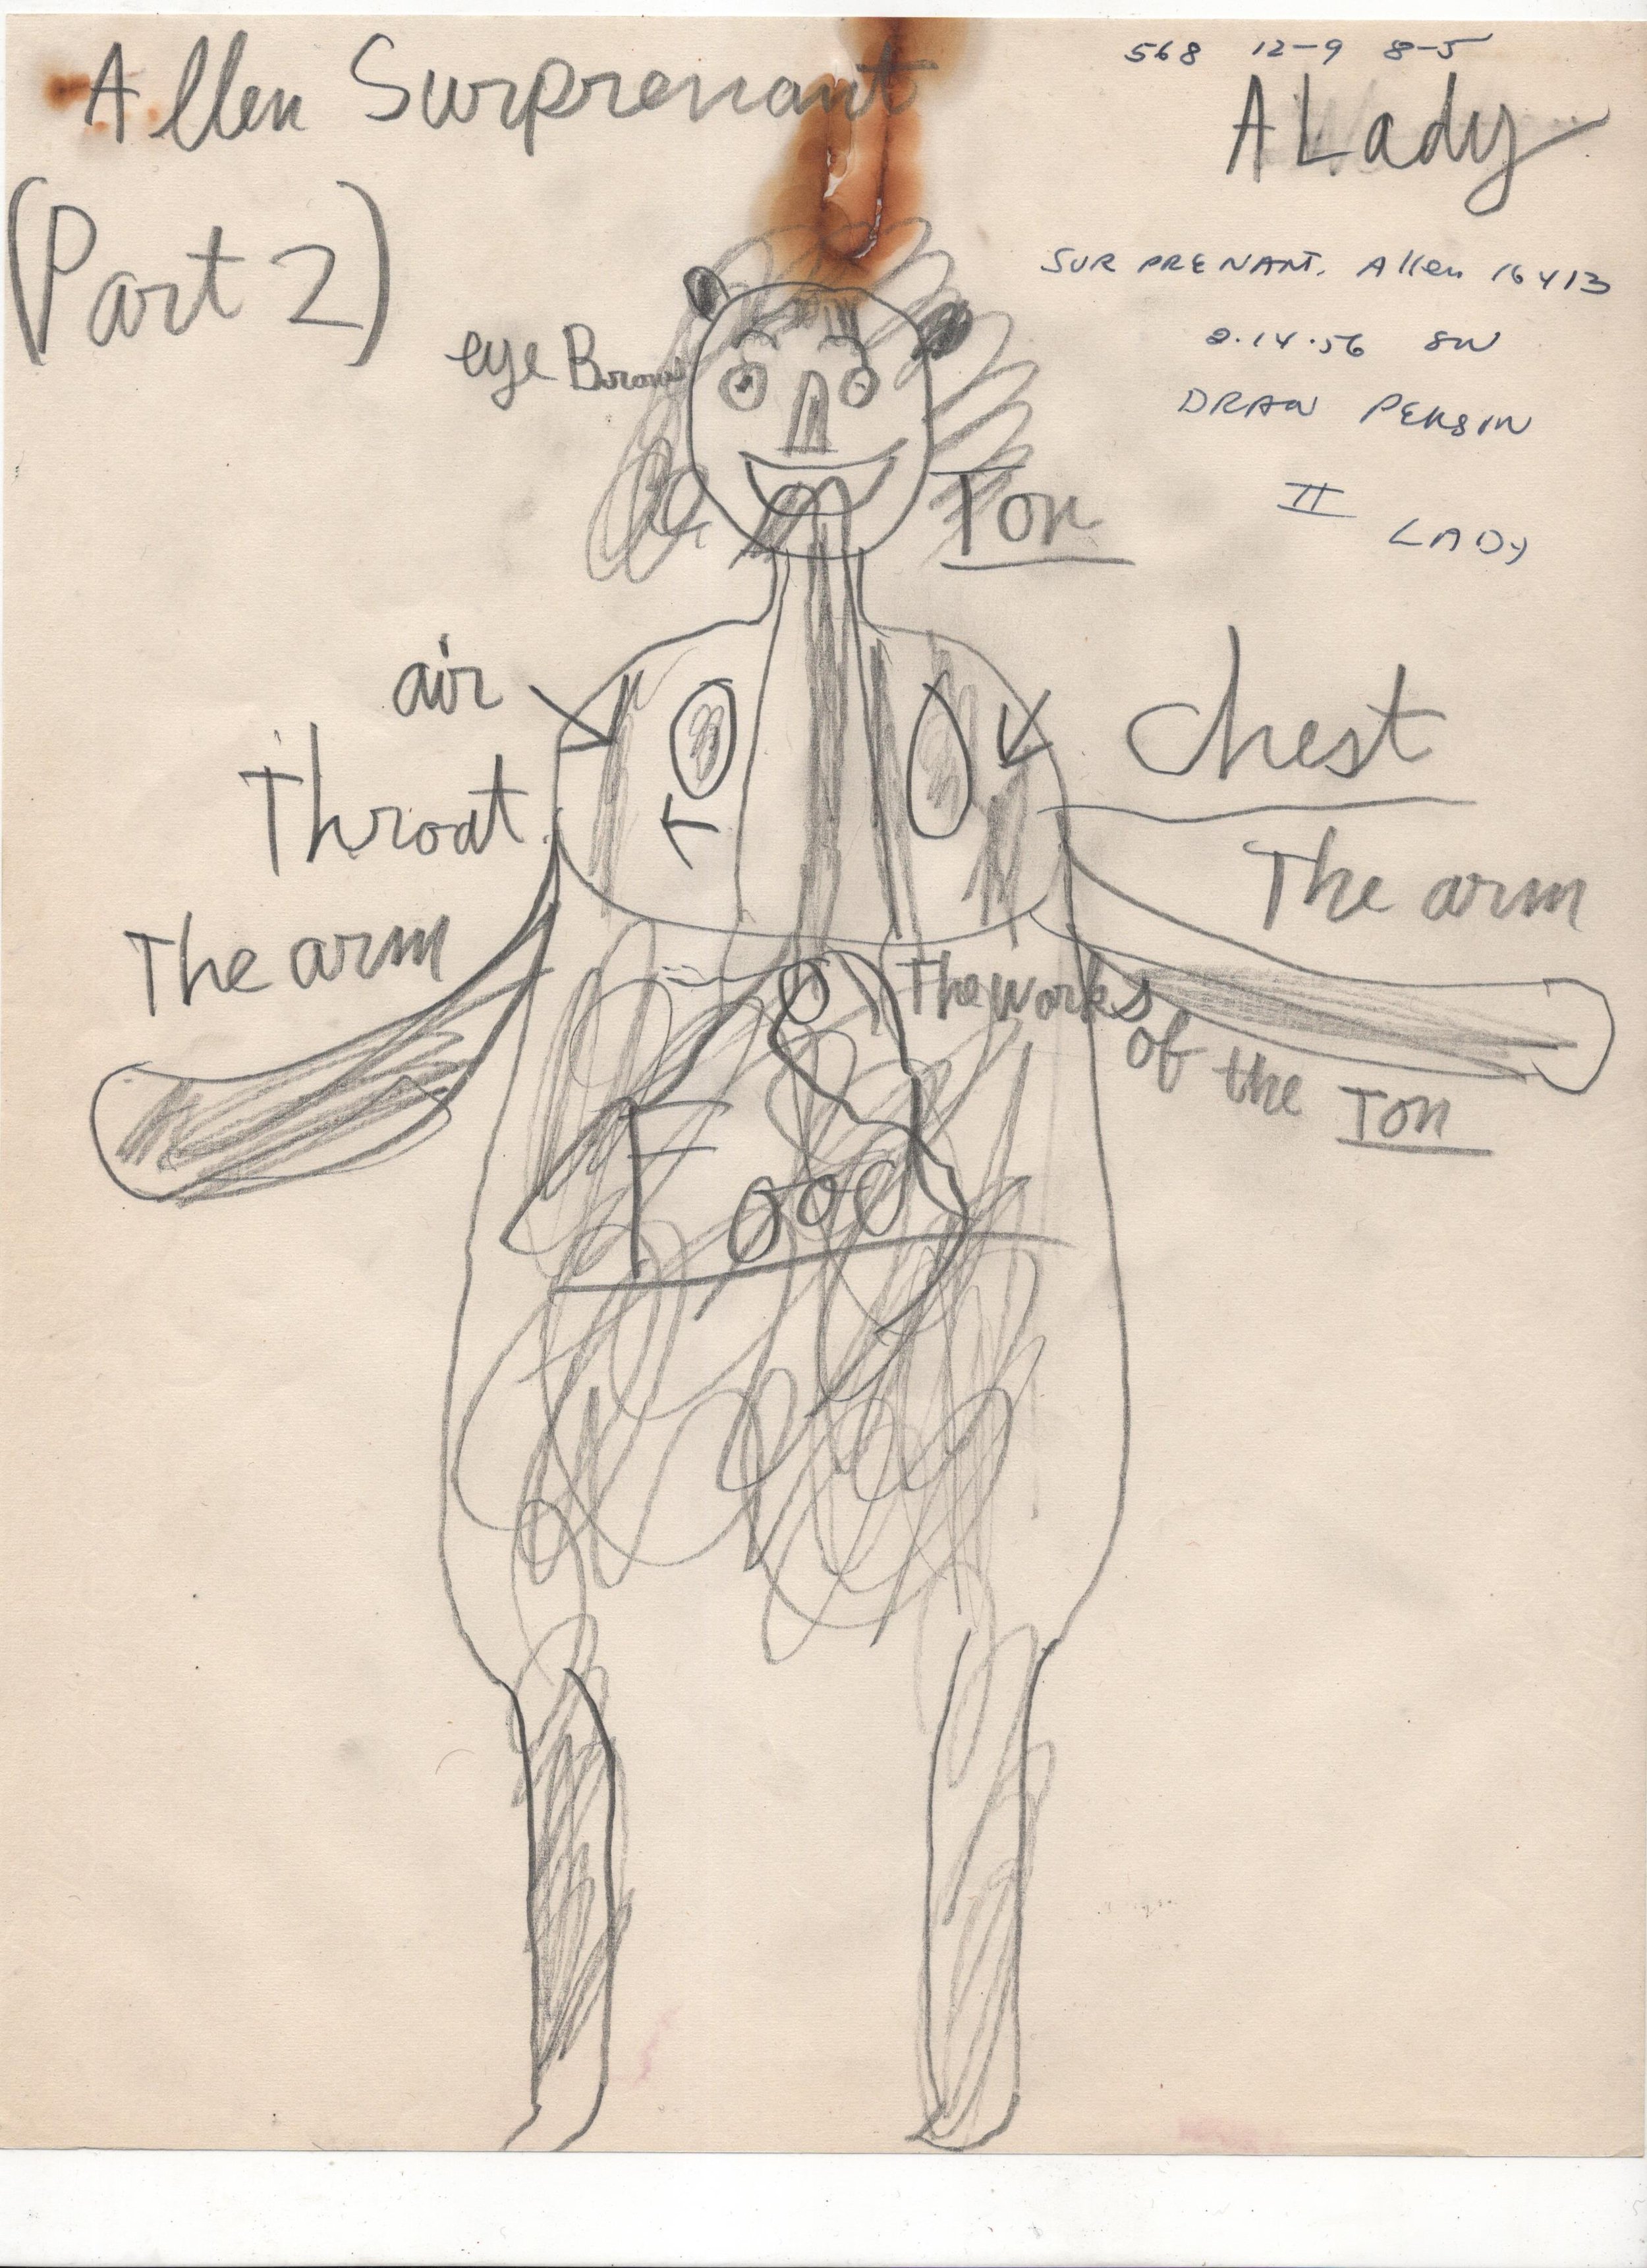 568 12-9 8-5
Allen Surprenant
A Lady
(Part 2)
SURPRENANT. Allen 16413
8.14.56 SW
DRAW PERSIN
II
LADY
eye Brow
Ton
air
Throat
chest
The arm
The arm
The works
of the Ton
Food